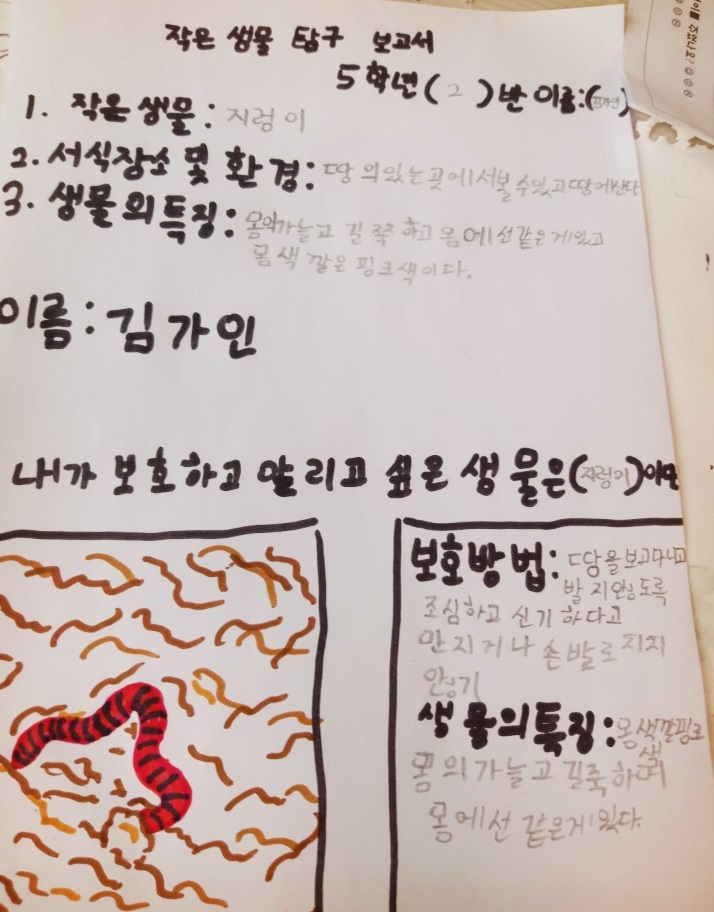 작은 생물 탐구 보고서
5학년( 2 )반 이름:(김가인)
1. 작은 생물: 지렁이
2. 서식장소 및 환경: 땅 의있는 곳에서볼 수있고 땅에산다
3. 생물의 특징: 몸의가늘고 길쭉 하고 몸에 선같은게있고
몸 색 깔은 핑크색이다.
이름: 김가인
내가 보호하고 알리고 싶은 생물은(지렁이)이며
보호방법: 땅을보고다니고
발 지않도록
조심하고 신기 하다고
만지거나 손발로 지지
않기
생물의특징: 몸색깔핑크
색
몸의가늘고길쭉하며
몸에선 같은게있다.